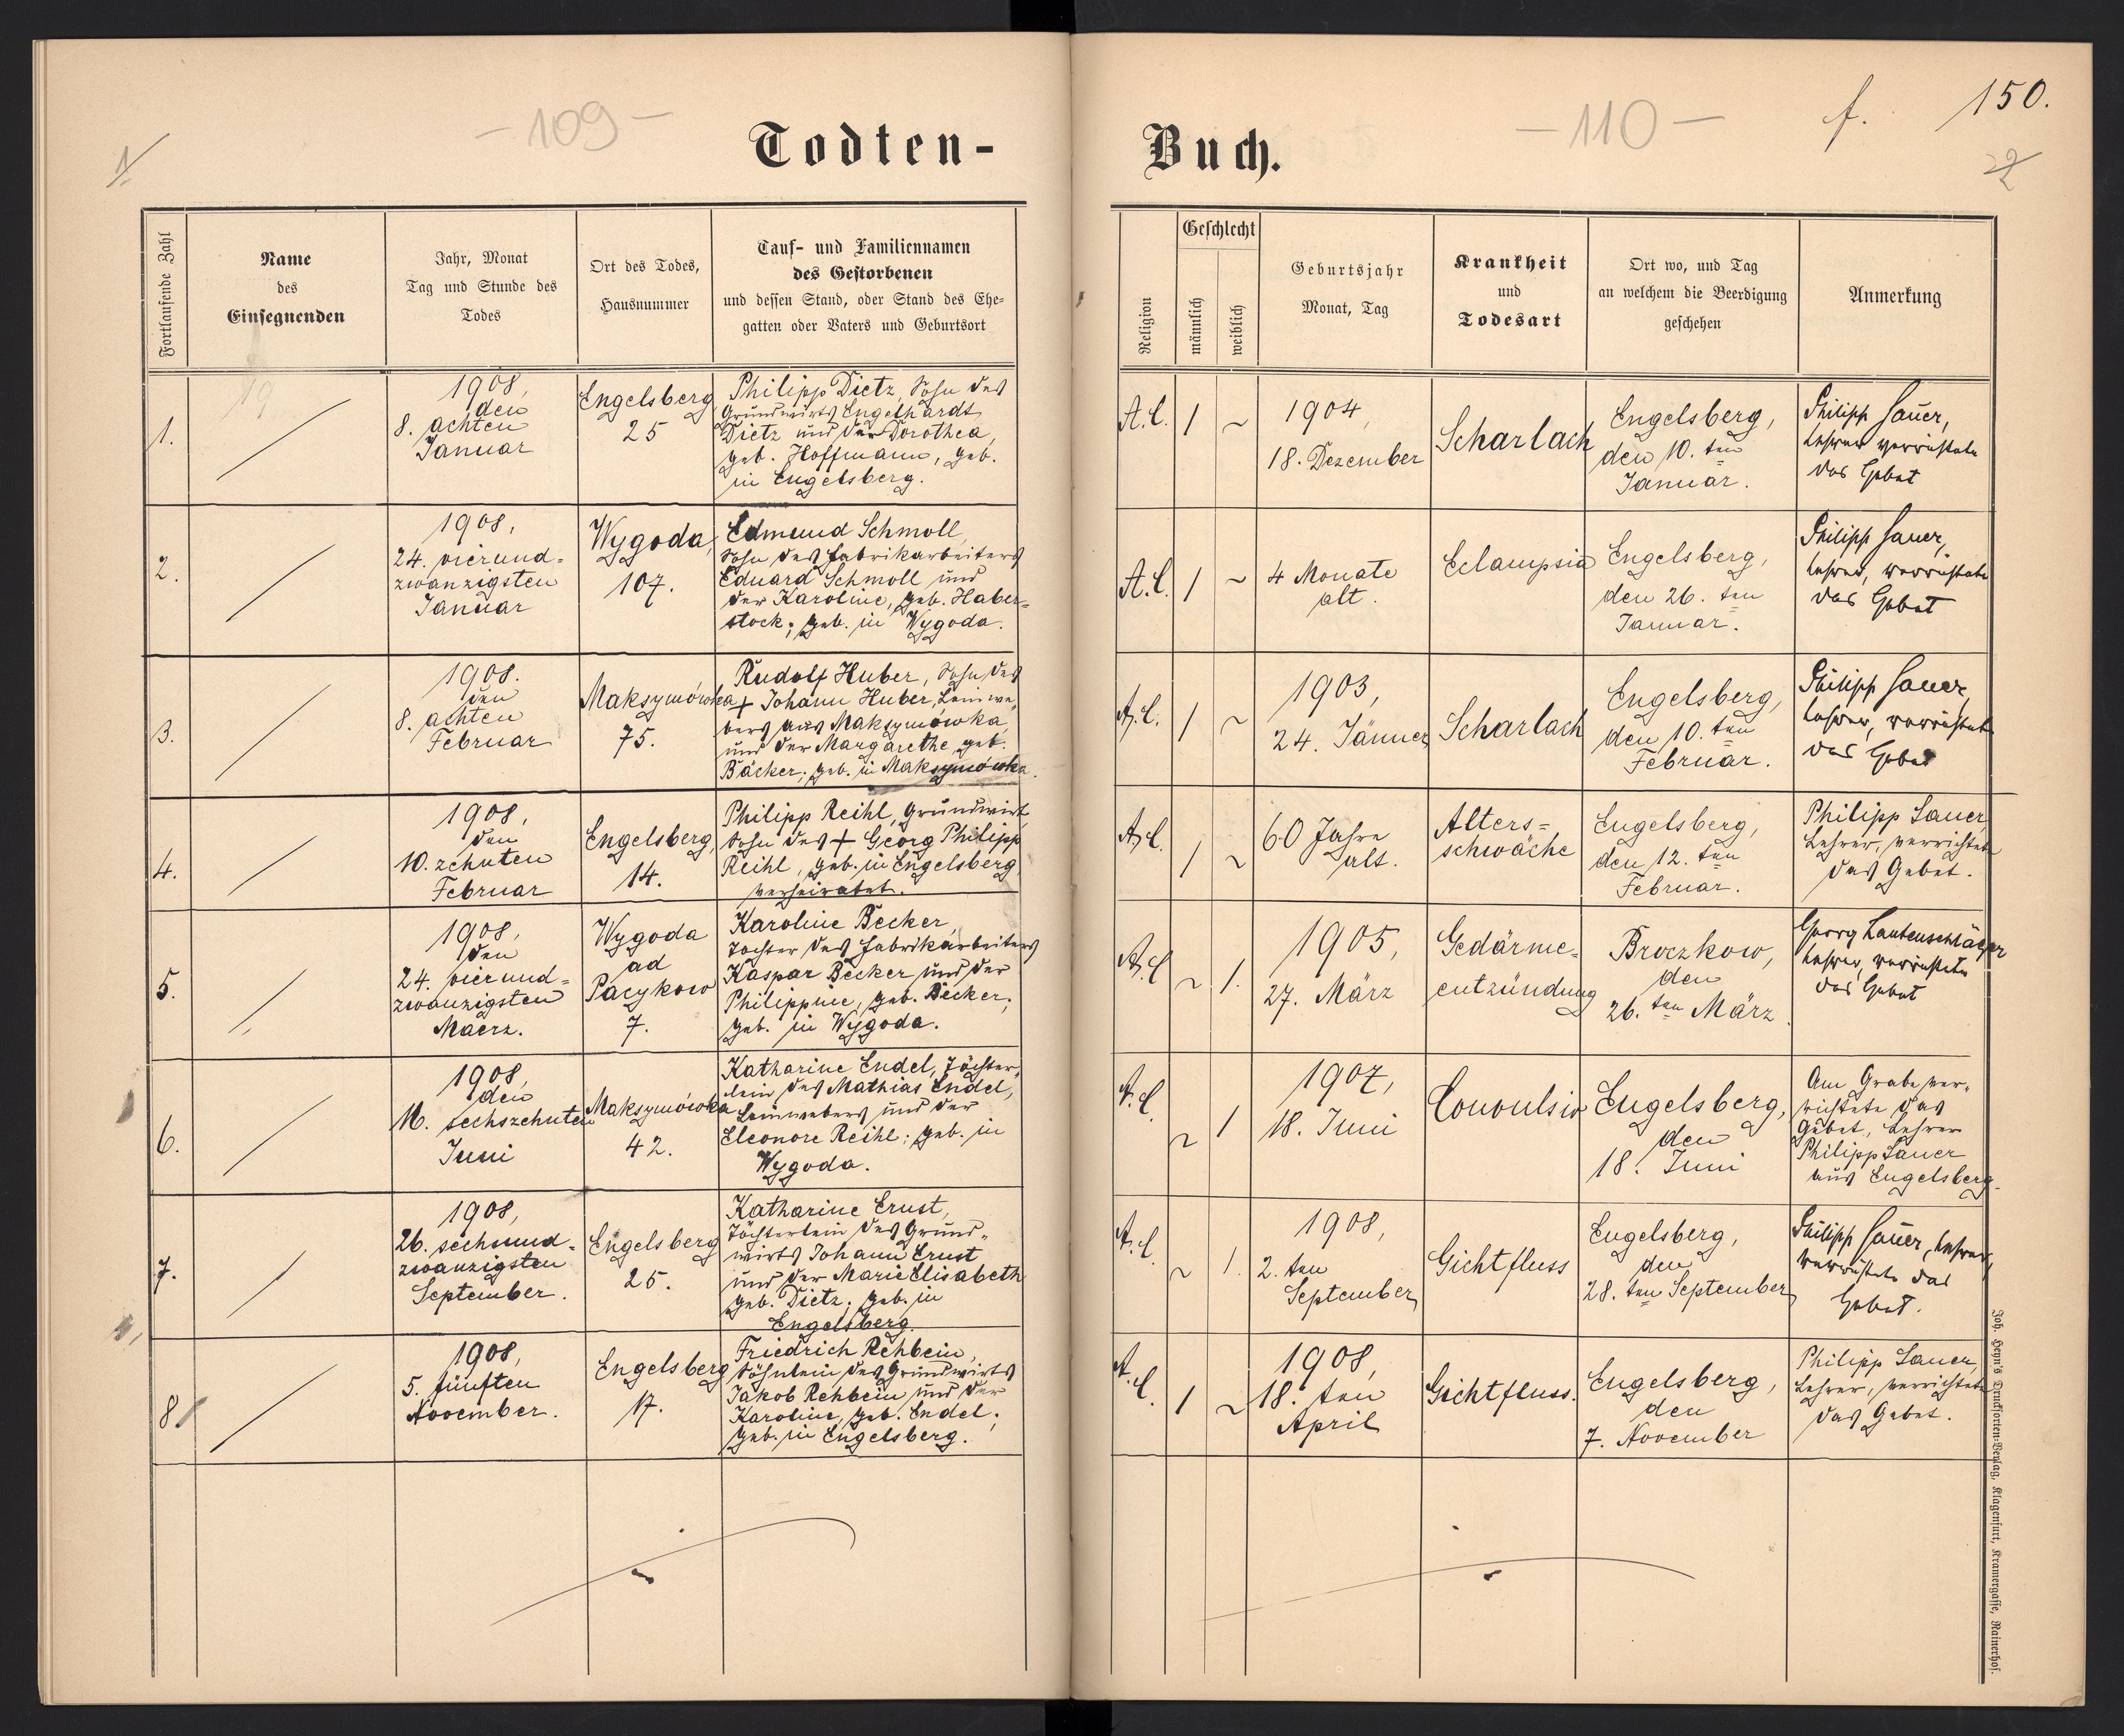 - 109 -
Todten-
Fortlaufende Zahl
Name
des
Einsegnenden
Jahr, Monat
Tag und Stunde des
Todes
Ort des Todes,
Hausnummer
Tauf- und Familiennamen
des Gestorbenen
und dessen Stand, oder Stand des Ehe-
gatten oder Vaters und Geburtsort
1.
1908,
den
8. achten
Januar
Engelsberg
25
Philipp Dietz, Sohn des
Grundwirts Engelhardt
Dietz und der Dorothea,
geb. Hoffmann, geb.
in Engelsberg.
2.
1908,
24. vierund-
zwanzigsten
Januar
Wygoda,
107.
Edmund Schmoll,
Sohn des Fabrikarbeiters
Eduard Schmoll und
der Karoline, geb. Haber-
stock; geb. in Wygoda.
3.
1908.
den
8. achten
Februar
Maksymówka
75.
Rudolf Huber, Sohn des
+ Johann Huber, Leinwe-
bers aus Maksymówka
und der Margarethe geb.
Bäcker; geb. in Maksymówka.
4.
1908,
den
10. zehnten
Februar
Engelsberg,
14.
Philipp Reihl, Grundwirt
Sohn des + Georg Philipp
Reihl, geb. in Engelsberg
verheiratet.
5.
1908,
den
24. vierund-
zwanzigsten
Maerz.
Wygoda
ad
Pacykow
7.
Karoline Becker,
Tochter des Fabrikarbeiters
Kaspar Becker und der
Philippine, geb. Becker;
geb. in Wygoda.
6.
1908,
den
16. sechszehnten
Juni
Maksymówka
42.
Katharine Endel, Töchter-
lein des Mathias Endel,
Leinwebers und der
Eleonore Reihl; geb. in
Wygoda.
7.
1908,
26. sechsund-
zwanzigsten
September.
Engelsberg
25.
Katharine Ernst,
Töchterlein des Grund-
wirts Johann Ernst
und der Marie Elisabeth
geb. Dietz; geb. in
Engelsberg.
8
1908,
5. fünften
November.
Engelsberg
17.
Friedrich Rehbein,
Söhnlein des Grundwirts
Jakob Rehbein und der
Karoline, geb. Endel;
geb. in Engelsberg.
- 110 -
f. 150.
Buch.
Religion
Geschlecht
männlich
weiblich
Geburtsjahr
Monat, Tag
Krankheit
und
Todesart
Ort wo, und Tag
an welchem die Beerdigung
geschehen
Anmerkung
A.C.
1
~
1904,
18. Dezember
Scharlach
Engelsberg,
den 10. ten
Januar.
Philipp Sauer,
Lehrer verrichtete
das Gebet
A.C.
1
~
4 Monate
alt.
Eclampsia
Engelsberg,
den 26. ten
Januar.
Philipp Sauer,
Lehrer, verrichtete
das Gebet
A.C.
1
~
1903,
24. Jänner
Scharlach
Engelsberg,
den 10. ten
Februar.
Philipp Sauer,
Lehrer, verrichtete
das Gebet
A.C.
1
~
60 Jahre
alt.
Alters-
schwäche
Engelsberg,
den 12. ten
Februar.
Philipp Sauer,
Lehrer, verrichtete
das Gebet.
A.C.
~
1.
1905,
27. März
Gedärme-
entzündung
Broczkow,
den
26. ten März.
Georg Lautenschläger
Lehrer, verrichtete
das Gebet
A.C.
~
1
1907,
18. Juni
Convulsio
Engelsberg,
den
18. Juni
Am Grabe ver-
richtete das
Gebet, Lehrer
Philipp Sauer
aus Engelsberg.
A.C.
~
1.
1908,
2. ten
September
Gichtfluss
Engelsberg,
den
28. ten September
Philipp Sauer, Lehrer,
verrichtete das
Gebet.
A.C.
1
~
1908,
18. ten
April
Gichtfluss.
Engelsberg,
den
7. November
Philipp Sauer,
Lehrer, verrichtete
das Gebet.
Joh. Heyn's Drucksorten-Verlag, Klagenfurt, Kramergasse, Rainerhof.